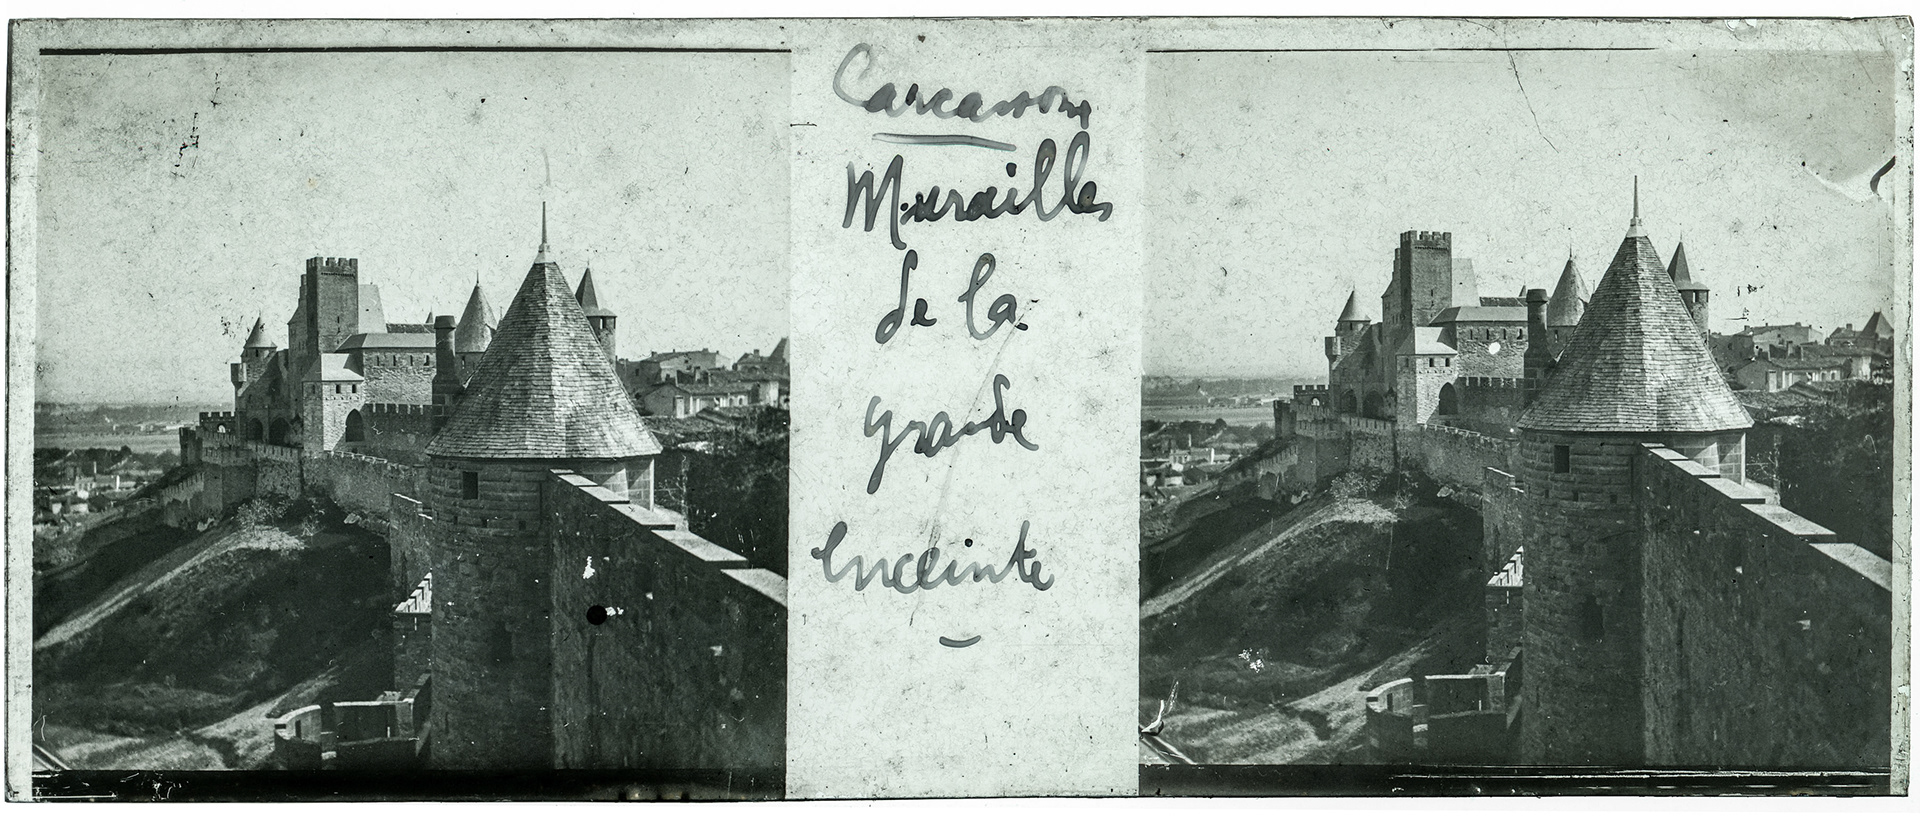 Carcassonne
Murailles
de la
grande
Enceinte